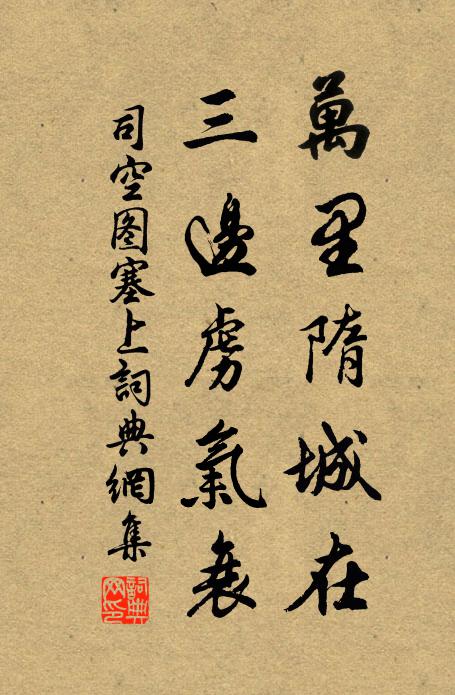 萬里隋城在
三邊虜氣衰
司空图塞上詞典網集
詞典網印